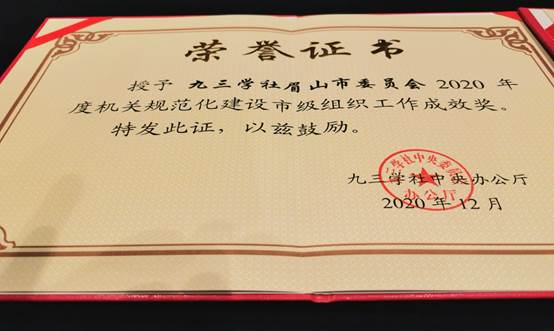 荣誉证书
授予 九三学社眉山市委员会 2020 年
度机关规范化建设市级组织工作成效奖。
特发此证，以兹鼓励。
九三学社中央办公厅
2020 年 12 月